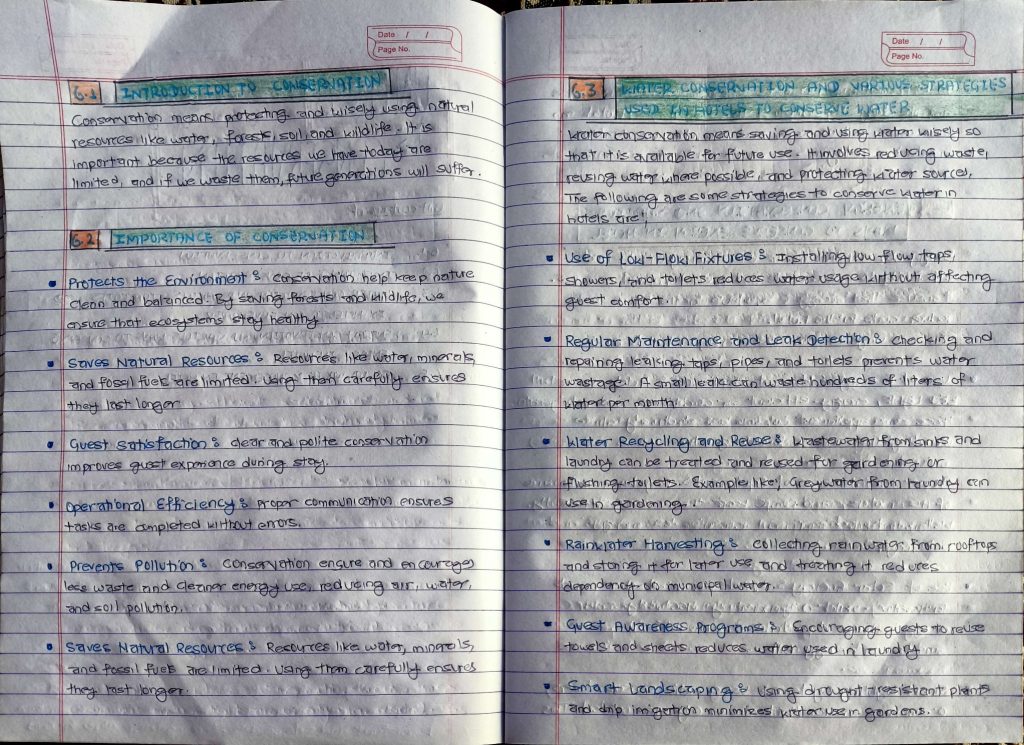 Date / /
Page No.
6.1 INTRODUCTION TO CONSERVATION
Conservation means protecting and wisely using natural
resources like water, forests, soil, and wildlife. It is
important because the resources we have today are
limited, and if we waste them, future generations will suffer.
6.2 IMPORTANCE OF CONSERVATION
• Protects the Environment : Conservation help keep nature
clean and balanced. By saving forests and wildlife, we
ensure that ecosystems stay healthy
• Saves Natural Resources : Resources like water, minerals,
and fossil fuels are limited. Using them carefully ensures
they last longer
• Guest Satisfaction : clear and polite conservation
improves guest experience during stay.
• Operational Efficiency : proper communication ensures
tasks are completed without errors.
• Prevents Pollution : Conservation ensure and encourages
less waste and cleaner energy use, reducing air, water,
and soil pollution.
• Saves Natural Resources : Resources like water, minerals,
and fossil fuels are limited. Using them carefully ensures
they last longer.
Date / /
Page No.
6.3 WATER CONSERVATION AND VARIOUS STRATEGIES
USED IN HOTELS TO CONSERVE WATER
Water conservation means saving and using water wisely so
that it is available for future use. It involves reducing waste,
reusing water where possible, and protecting water sources.
The following are some strategies to conserve water in
hotels are ;
• Use of Low-Flow Fixtures : Installing low-flow taps,
showers, and toilets reduces water usage without affecting
guest comfort.
• Regular Maintenance and Leak Detection : checking and
repairing leaking taps, pipes, and toilets prevents water
wastage. A small leak can waste hundreds of liters of
water per month.
• Water Recycling and Reuse : Wastewater from sinks and
laundry can be treated and reused for gardening or
flushing toilets. Example like, Greywater from laundry can
use in gardening.
• Rainwater Harvesting : collecting rainwater from rooftops
and storing it for later use and treating it reduces
dependency on municipal water.
• Guest Awareness Programs : Encouraging guests to reuse
towels and sheets reduces water used in laundry
• Smart Landscaping : Using drought-resistant plants
and drip irrigation minimizes water use in gardens.